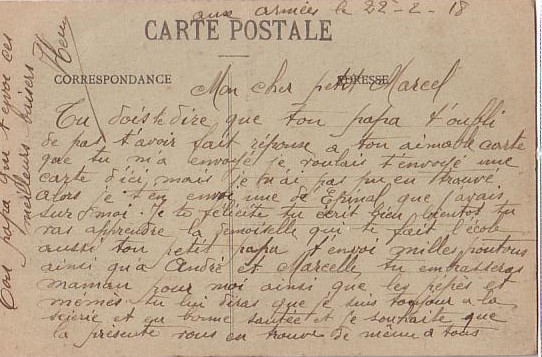 aux armées le 22-2-18
CARTE POSTALE
CORRESPONDANCE
ADRESSE
Mon cher petit Marcel
Tu dois te dire que ton papa t'oubli
de pas t'avoir fait réponse a ton aimable carte
que tu m'a envoyé je voulais t'envoyé une
carte d'ici mais je n'ai pas pu en trouvé
alors je t'en envoi une de Epinal que j'avais
sur moi. je te felicite tu écrit bien bientot tu
vas apprendre la demoiselle qui te fait l'école
aussi ton petit papa t'envoi milles poutous
ainsi qu'a André et Marcelle tu embrasseras
maman pour moi ainsi que les pepés et
memés tu lui diras que je suis toujour a la
scierie et en bonne santée et je souhaite que
la présente vous en trouve de même a tous
Ton papa qui t'envoi ces
meilleurs baisers